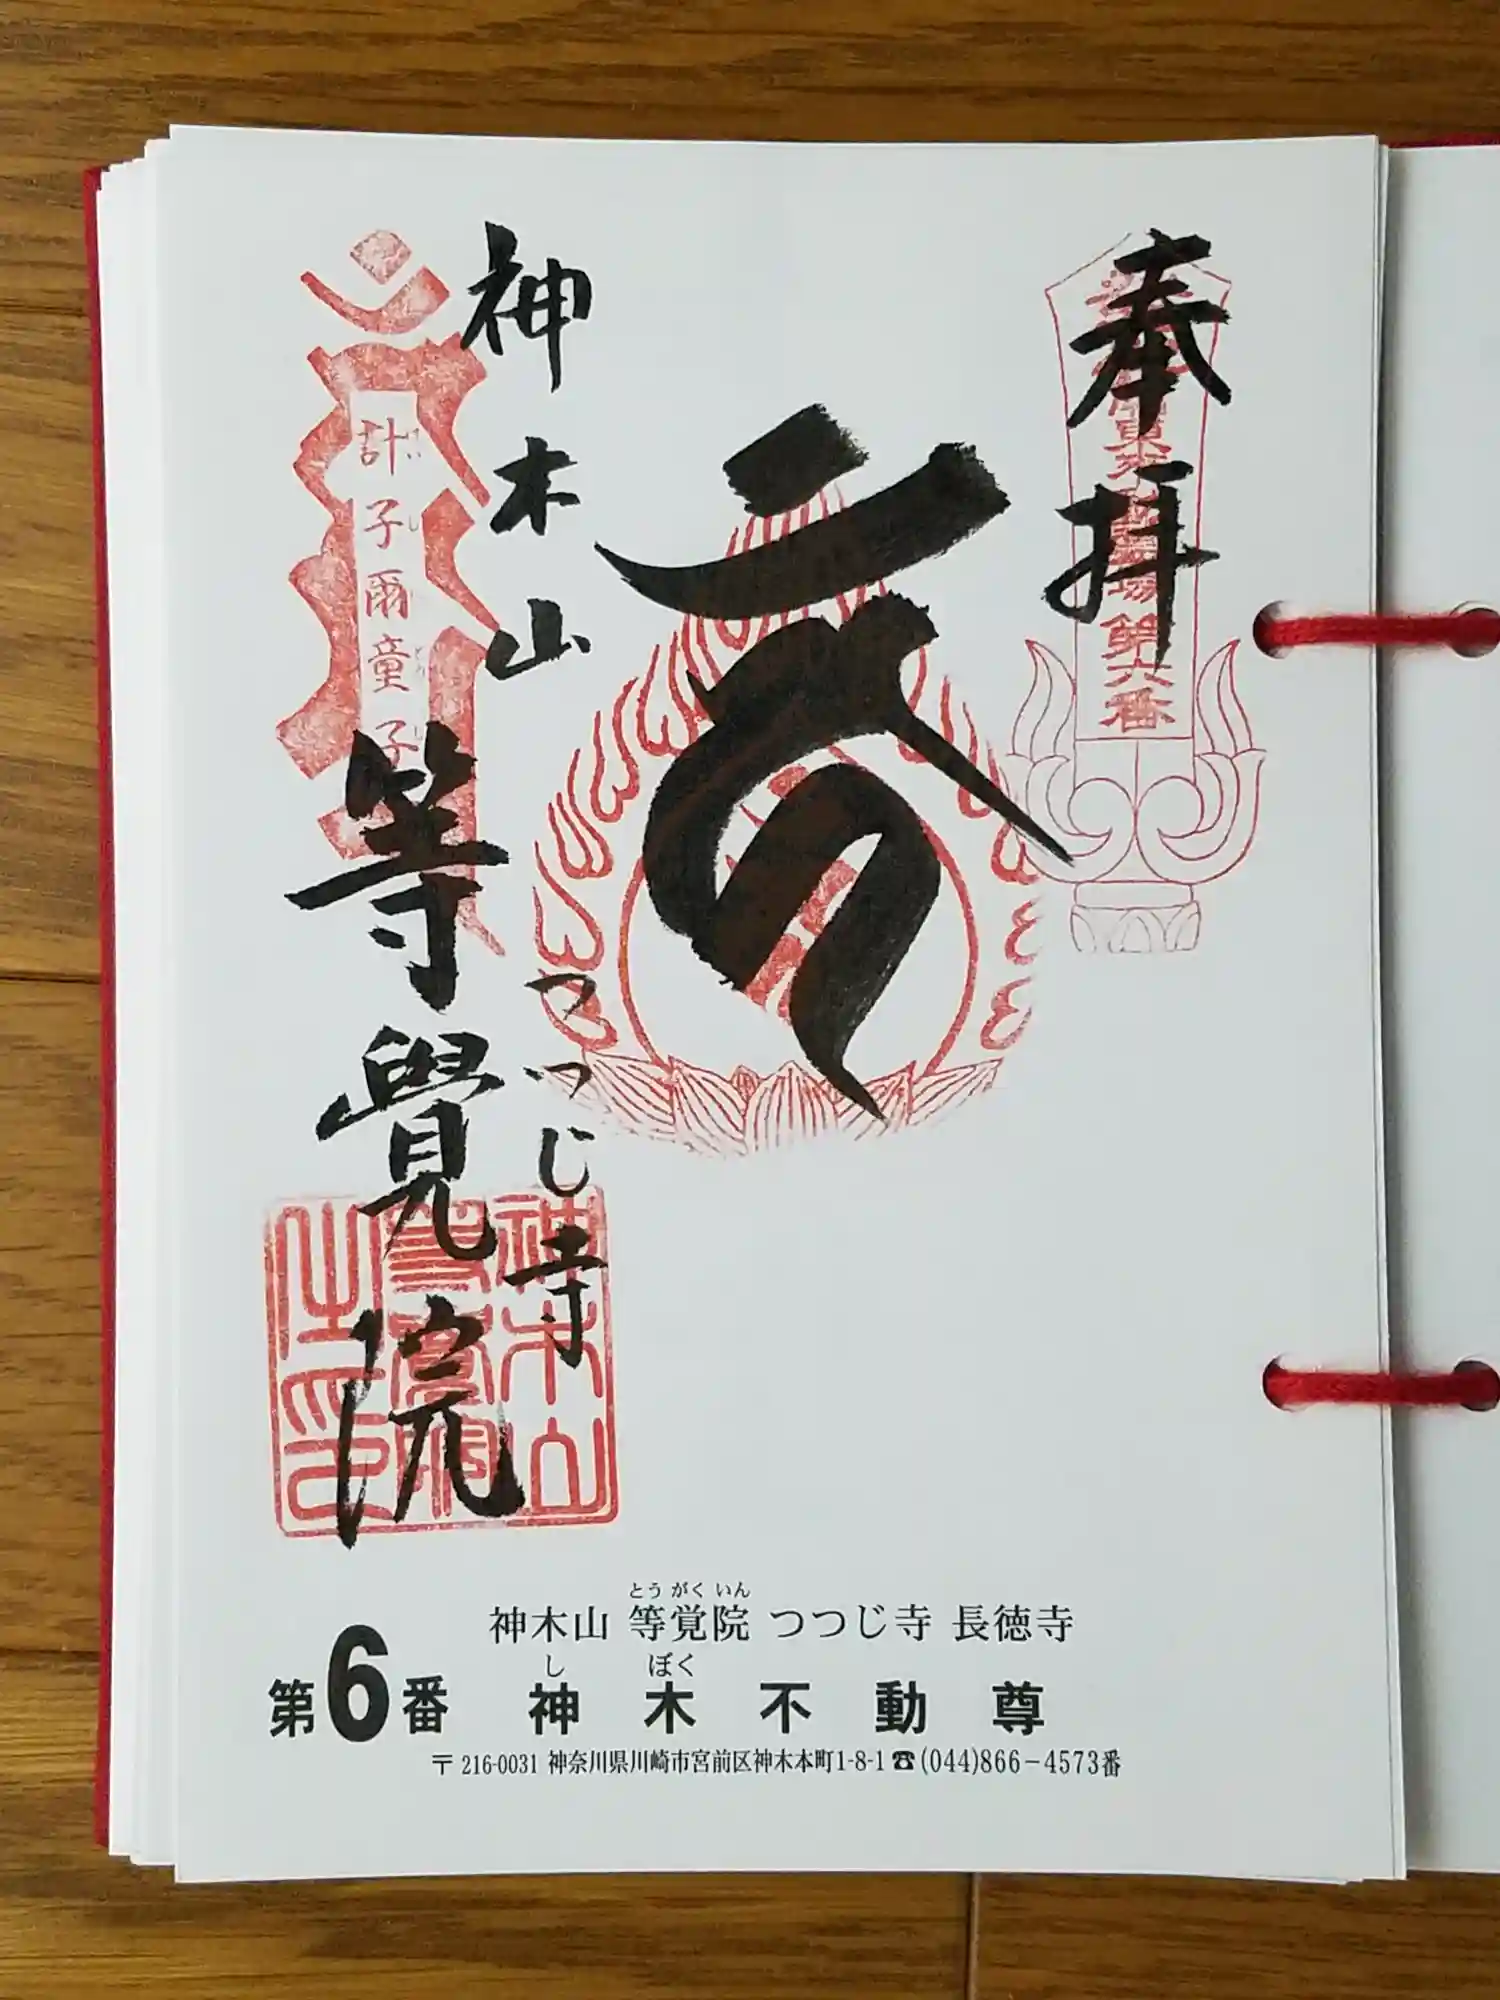 奉拝
第六番
神木山
つつじ寺
等覺院
計子爾童子
けいしにどうじ
神木山
之印
とうがくいん
神木山 等覚院 つつじ寺 長徳寺
しぼく
第6番 神木不動尊
〒216-0031 神奈川県川崎市宮前区神木本町1-8-1☎(044)866-4573番